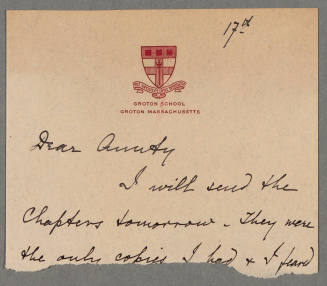 17th
GROTON SCHOOL
GROTON MASSACHUSETTS
Dear Aunty
I will send the
Chapters tomorrow - They were
the only copies I had & I feared